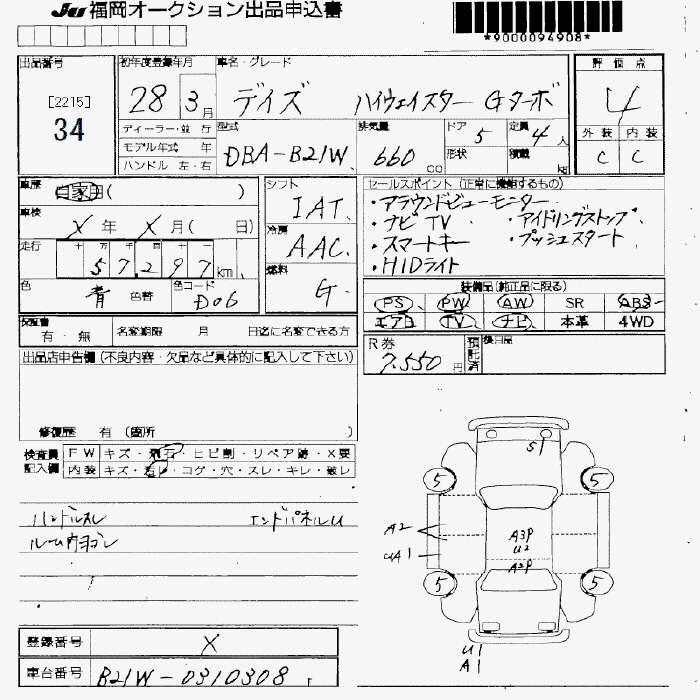 JU 福岡オークション出品申込書
*9000094908*
出品番号 初年度登録年月 車名・グレード 評価点
[2215]
34
28 3月 デイズ ハイウェイスター Gターボ 4
ディーラー・並行
モデル年式 年
ハンドル 左・右
型式 排気量 ドア 定員 外装 内装
DBA-B21W 660 cc 5 4人 C C
形状 積載 kg
車歴 自家用( )
車検 X年 X月( 日)
走行 十 万 千 百 十 一
57297km
色 青 色替 色コード D06
シフト IAT
冷房 AAC
燃料 G
セールスポイント(正常に機能するもの)
・アラウンドビューモニター
・ナビTV ・アイドリングストップ
・スマートキー ・プッシュスタート
・HIDライト
装備品(純正品に限る)
PS PW AW SR ABS
エアB TV ナビ 本革 4WD
保証書 有・無 名変期限 月 日迄に名変できる方
R券 7,550円 預託済 後日品
出品店申告欄(不良内容・欠品など具体的に記入して下さい)
修復歴 有(箇所 )
検査員記入欄
FW キズ・飛石・ヒビ割・リペア跡・X要
内装 キズ・汚レ・コゲ・穴・スレ・キレ・破レ
ハンドルスレ エンドパネルU
ルーム内ヨゴレ
S1
5 5
A2
UA1
A3P
U2
A2P
5 5
U1
A1
登録番号 X
車台番号 B21W-0310308